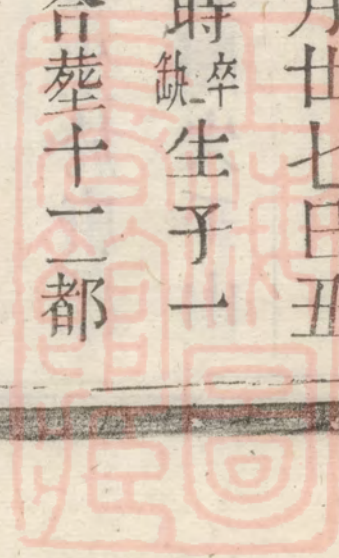 月廿七日丑
時卒缺生子一
合塟十二都